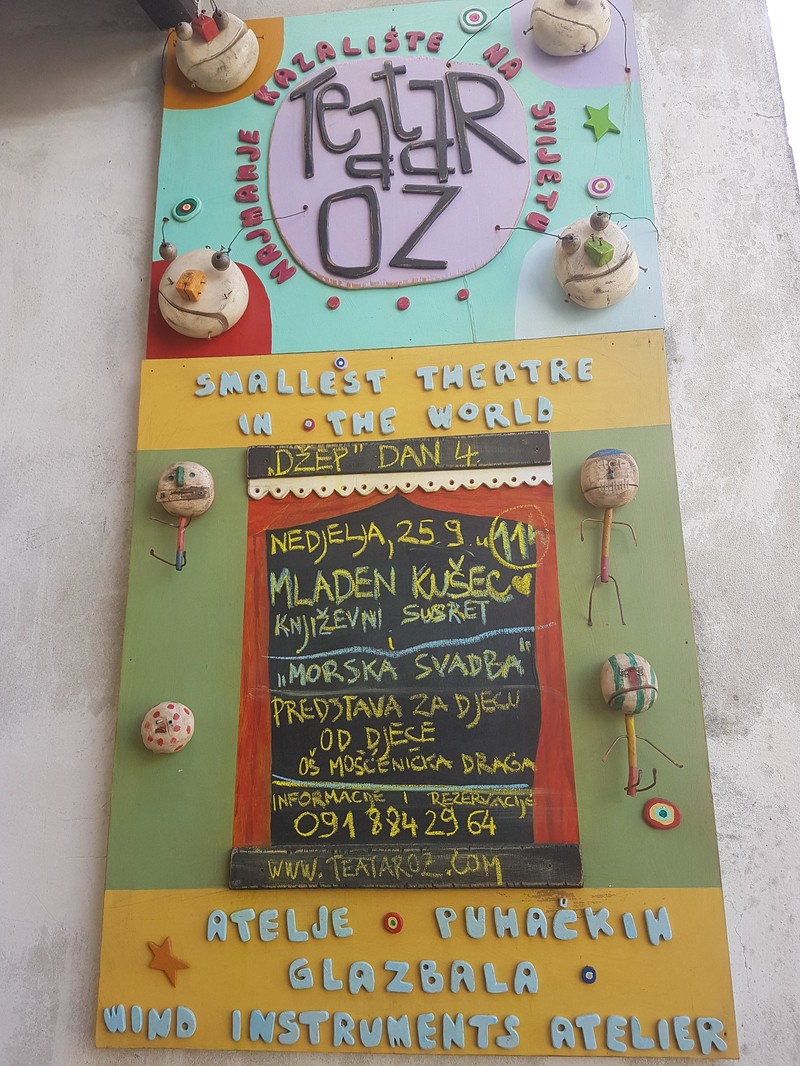 NAJMANJE KAZALIŠTE NA SVIJETU
TeataR
OZ
SMALLEST THEATRE
IN THE WORLD
„DŽEP" DAN 4.
NEDJELJA, 25.9. u 11h
MLADEN KUŠEC
KNJIŽEVNI SUSRET
i
„MORSKA SVADBA"
PREDSTAVA ZA DJECU
OD DJECE
OŠ MOŠĆENIČKA DRAGA
INFORMACIJE I REZERVACIJE
091 884 29 64
WWW.TEATAROZ.COM
ATELJE PUHAČKIH
GLAZBALA
WIND INSTRUMENTS ATELIER